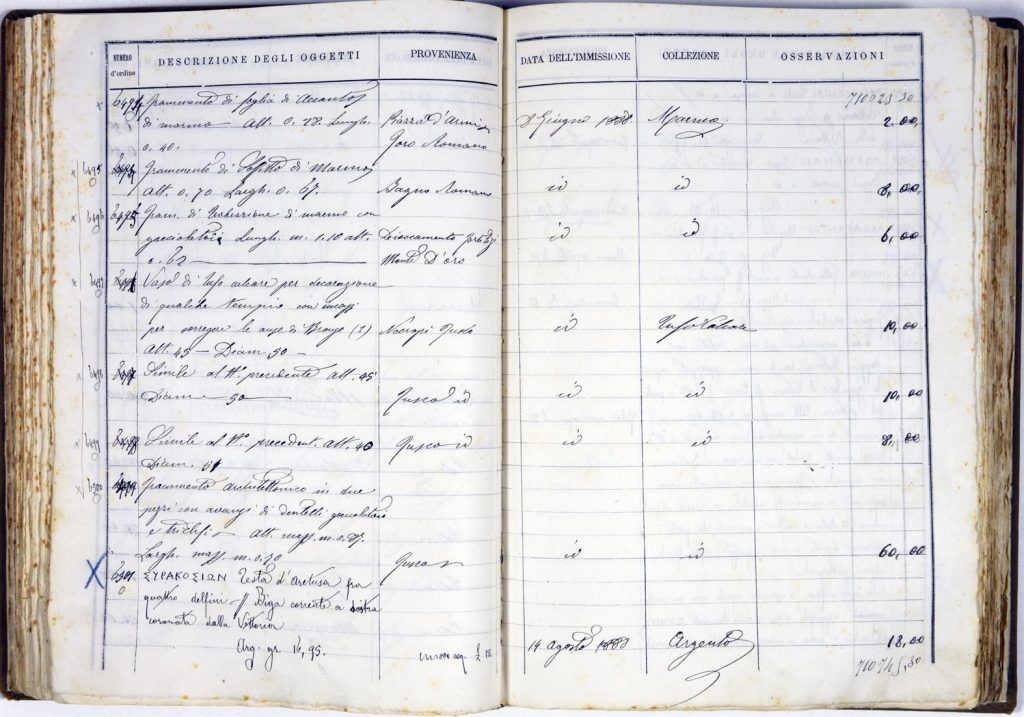 NUMERO d'ordine DESCRIZIONE DEGLI OGGETTI PROVENIENZA DATA DELL'IMMISSIONE COLLEZIONE OSSERVAZIONI
710623.30
Frammento di foglia di Acanto
di marmo — Alt. 0.28. Lungh. Piazza d'Armi 8 Giugno 1888 Marmo 2.00
0.40. Foro Romano
6495 Frammento di soffitto di Marmo
Alt. 0.70 Largh. 0.67. Bagno Romano id id 8,00
6496 Fram. di di marmo con
gocciolatoi Lungh. m. 1.10 alt. id id 6,00
0.62 Monte D'oro
6497 Vaso di tufo calcare per decorazione
di qualche tempio con incassi
per sorreggere le anse di Bronzo (2) id Tufo Calcare 10,00
Alt. 45 — Diam. 50
Simile al N.º precedente alt. 45
Diam. 50 id id id 10,00
6499 Simile al N.º precedent. alt. 40 id id id 8,00
Diam. 51
6500 Frammento architettonico in due
pezzi con avanzi di dentelli gocciolatoio
e triclifi Alt. mass. m. 0.
Largh. mass. m. 0.90 id id 60,00
6501 ΣΥΡΑΚΟΣΙΩΝ Testa d'Aretusa fra
quattro delfini // Biga corrente a
coronata dalla Vittoria
14 Agosto 1888 Argento 18,00
Arg. gr. 16,95. acq. £ 18.
710745,30